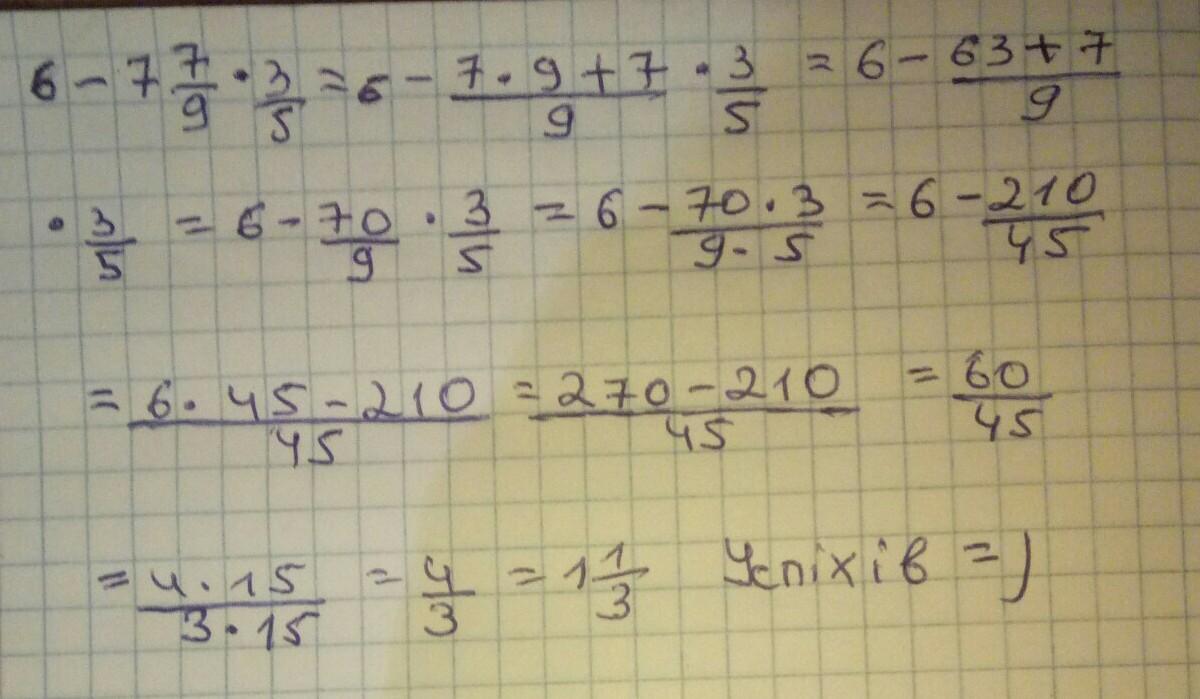 6 - 7 7/9 · 3/5 = 6 - (7 · 9 + 7)/9 · 3/5 = 6 - (63 + 7)/9
· 3/5 = 6 - 70/9 · 3/5 = 6 - (70 · 3)/(9 · 5) = 6 - 210/45
= (6 · 45 - 210)/45 = (270 - 210)/45 = 60/45
= (4 · 15)/(3 · 15) = 4/3 = 1 1/3 Успіхів =)